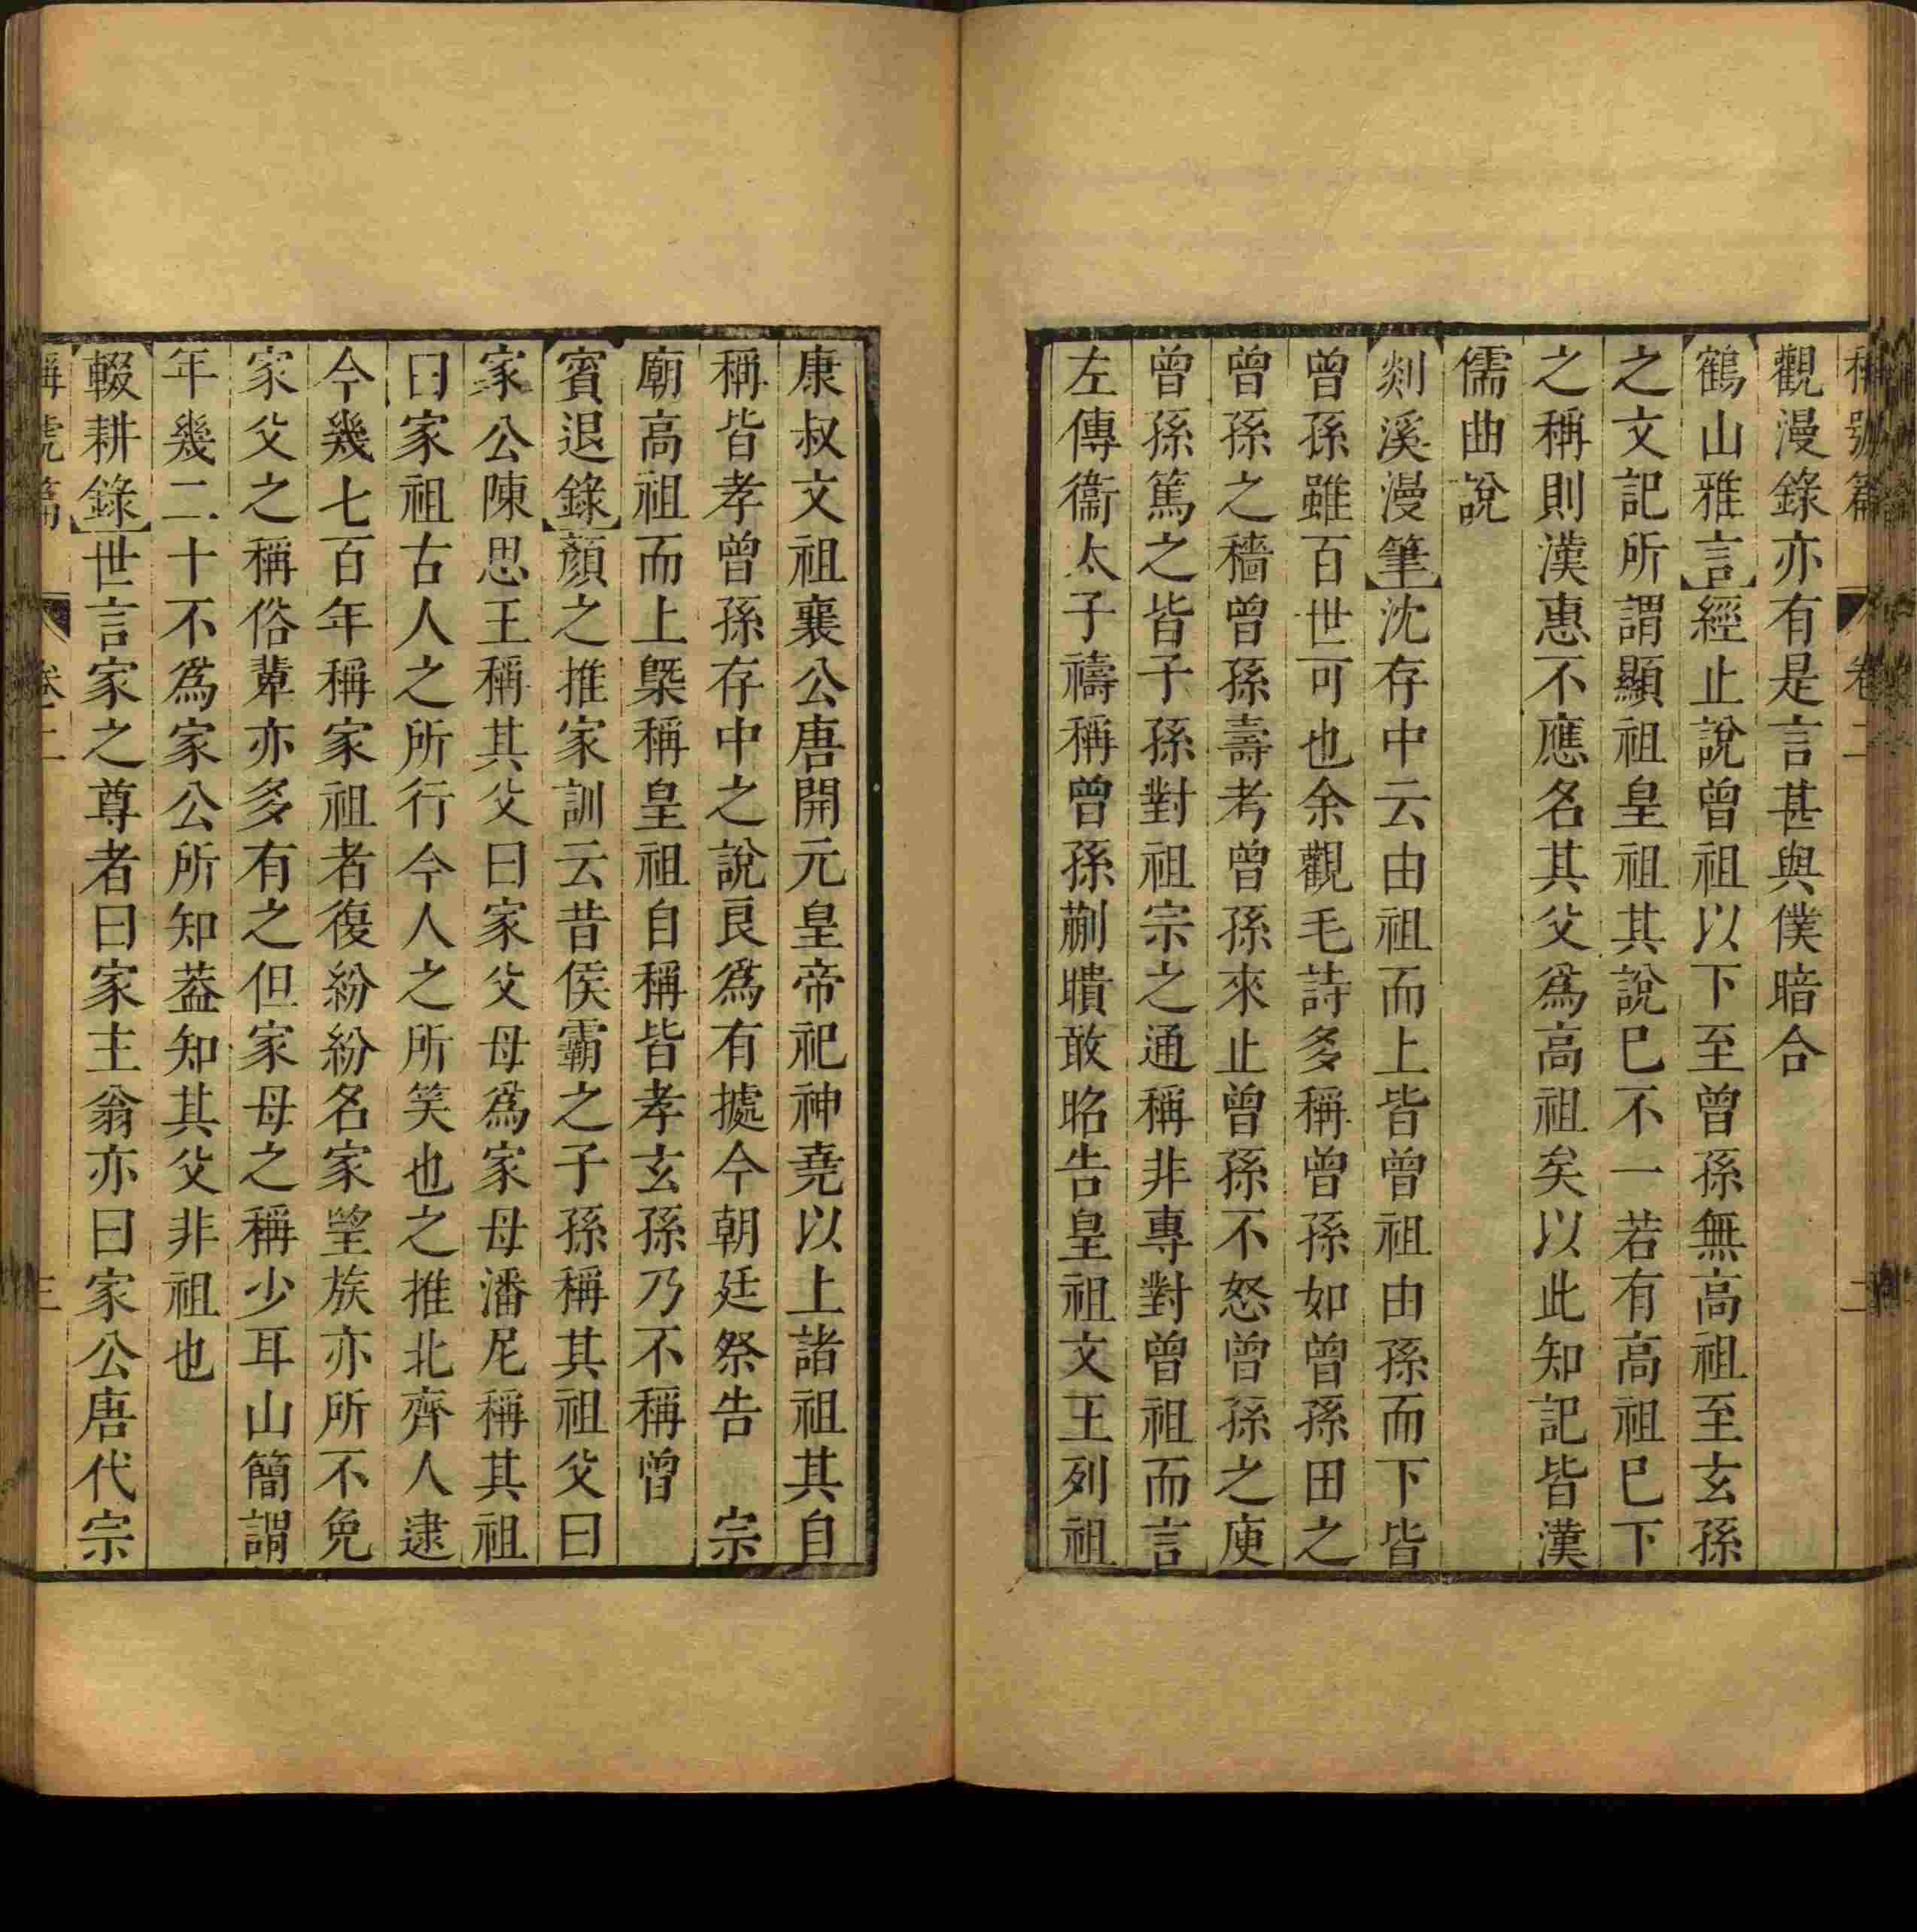 稱號篇 卷二 二
觀漫錄亦有是言甚與僕暗合
鶴山雅言經止說曾祖以下至曾孫無高祖至玄孫
之文記所謂顯祖皇祖其說已不一若有高祖已下
之稱則漢惠不應名其父爲高祖矣以此知記皆漢
儒曲說
剡溪漫筆沈存中云由祖而上皆曾祖由孫而下皆
曾孫雖百世可也余觀毛詩多稱曾孫如曾孫田之
曾孫之穡曾孫壽考曾孫來止曾孫不怒曾孫之庾
曾孫篤之皆子孫對祖宗之通稱非專對曾祖而言
左傳衞太子禱稱曾孫蒯聵敢昭告皇祖文王列祖
康叔文祖襄公唐開元皇帝祀神堯以上諸祖其自
稱皆孝曾孫存中之說良爲有據今朝廷祭告 宗
廟高祖而上槩稱皇祖自稱皆孝玄孫乃不稱曾
賓退錄顏之推家訓云昔侯霸之子孫稱其祖父曰
家公陳思王稱其父曰家父母爲家母潘尼稱其祖
曰家祖古人之所行今人之所笑也之推北齊人逮
今幾七百年稱家祖者復紛紛名家望族亦所不免
家父之稱俗輩亦多有之但家母之稱少耳山簡謂
年幾二十不爲家公所知蓋知其父非祖也
輟耕錄世言家之尊者曰家主翁亦曰家公唐代宗
稱號篇 卷二 三